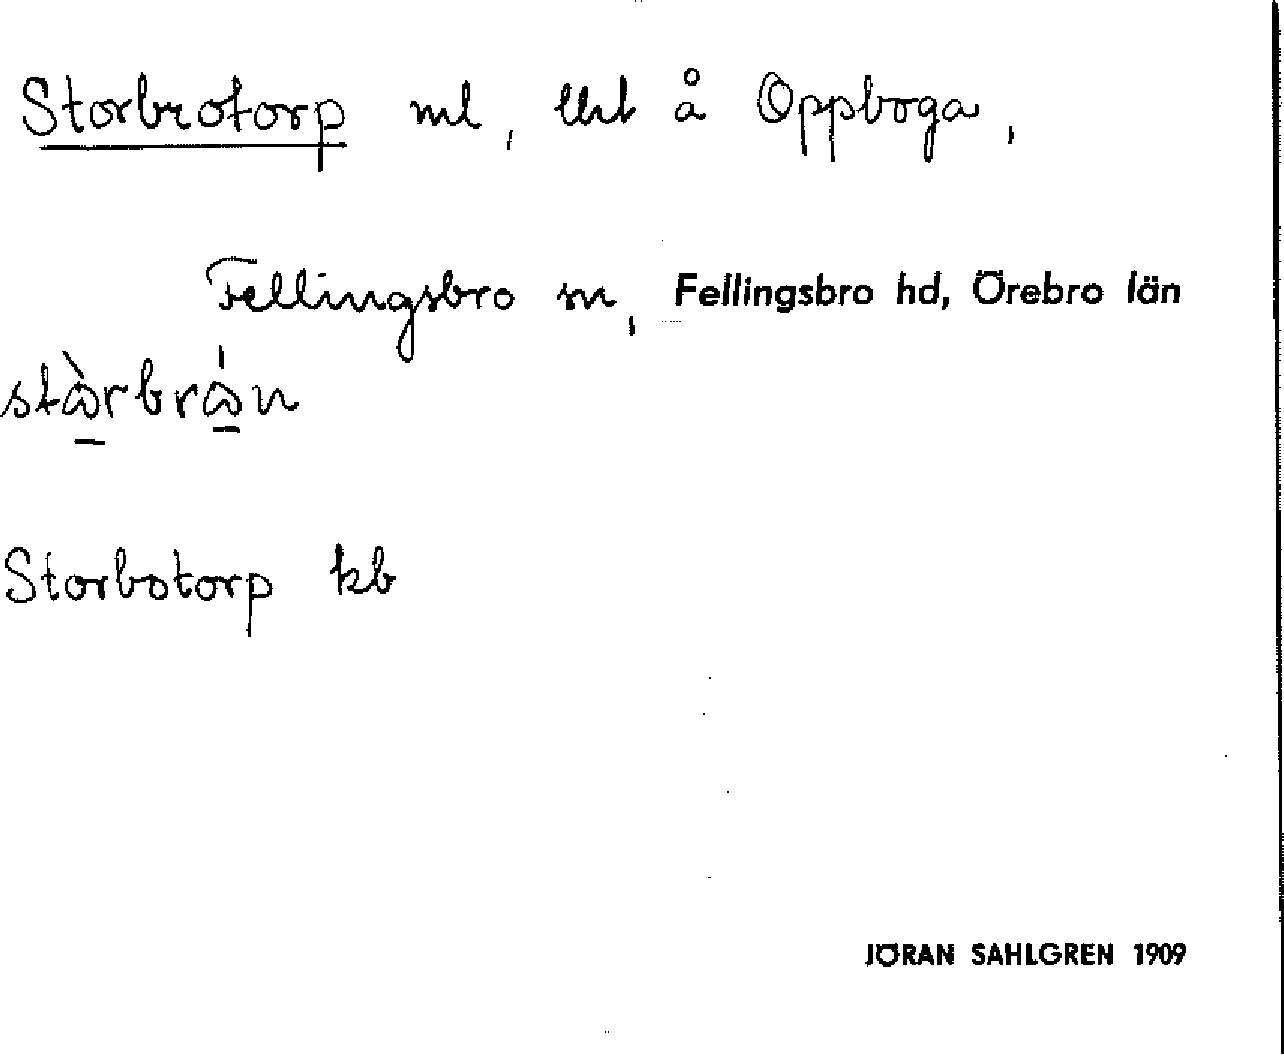 Storbrotorp ml, Urt å Oppboga,
Fellingsbro sn, Fellingsbro hd, Örebro län
Storbotorp kb
JÖRAN SAHLGREN 1909